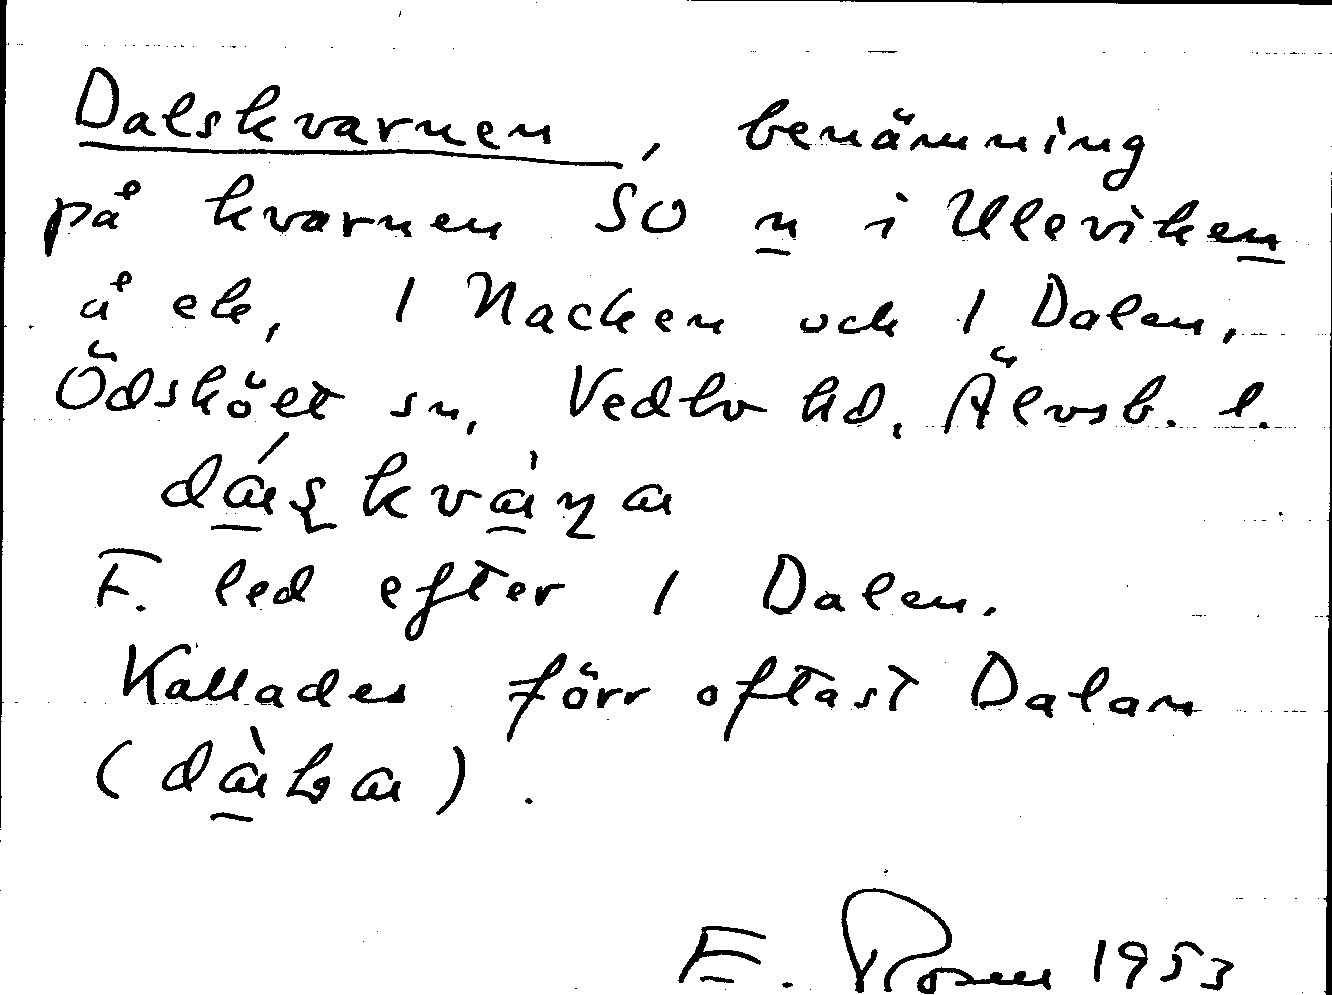 Dalskvarnen, benämning
på kvarnen SO n i Uleviken
å ek, 1 Nacken och 1 Dalen,
Ödskölt sn, Vedbo hd, Älvsb. l.
F. led efter 1 Dalen.
Kallades förr oftast Dalan
E. Rosen 1953